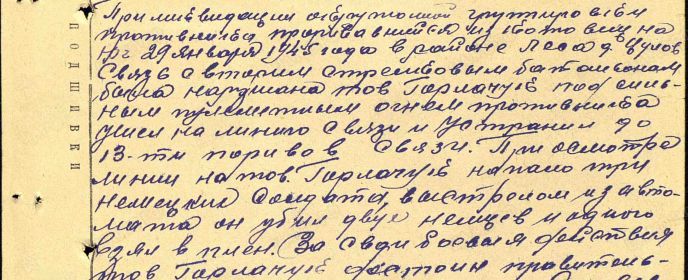 При ликвидации окружонной групировки
противника прорывавшейся из котла на
юг 29 января 1945 года в районе леса д.
связь с вторим стрелковым батальоном
была нарушана тов Горлачук под силь-
ным пулеметным огнем противника
ушел на линию связи и устранил до
13-ти поривов связи. При осмотре
линии на тов. Горлачук напало три
немецких солдата, выстрелом из авто-
мата он убил двух немцев и одного
взял в плен. За свои боевыя действия
тов Горлачук достоин правитель-
ПОДШИВКИ